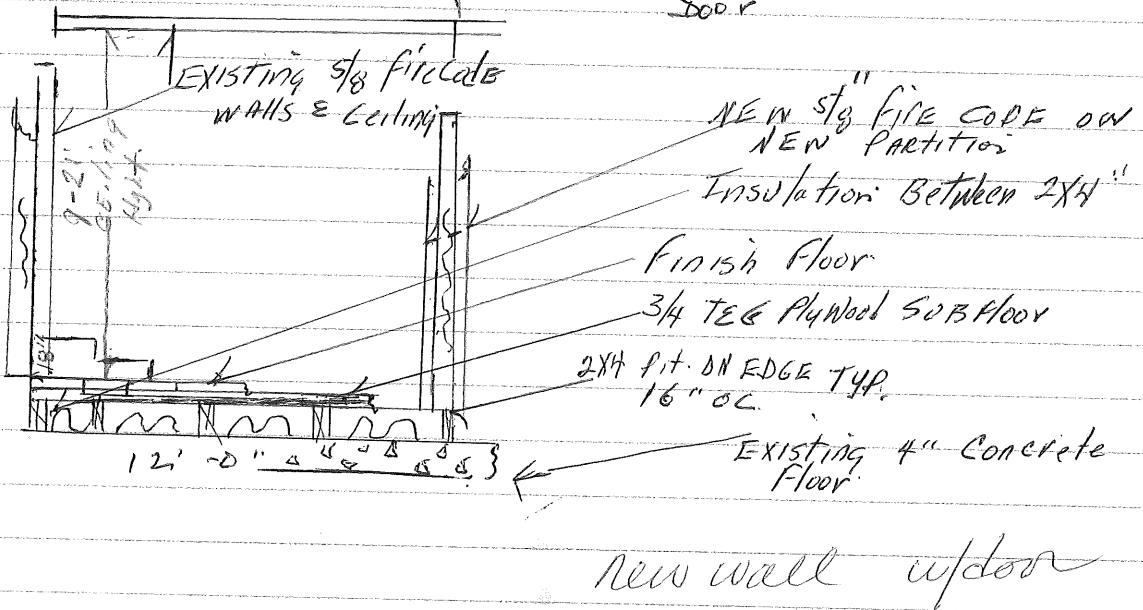 Door
EXISTING 5/8 firecode
WALLS & Ceiling
NEW 5/8" FIRE CODE ON
NEW PARTITION
Insulation Between 2X4"
9-2i
CEiling
Hght.
Finish Floor
3/4 T&G Plywood SUBFloor
2X4 P.t. ON EDGE TYP.
16" OC.
18"
12i-0"
EXISTING 4" Concrete
Floor
new wall w/door